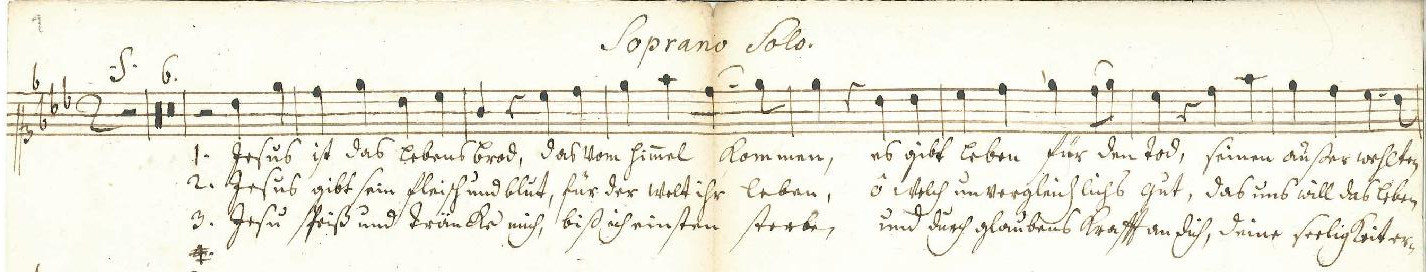 1
Soprano Solo.
S. 6.
1. Jesus ist das lebens brod, das vom him̄el kommen, es gibt leben für den Tod, seinen außer wehlten
2. Jesus gibt sein fleisch und blut, für der welt ihr leben, ô welch unvergleichlichs Gut, das uns will das leben
3. Jesu speiß und tränke mich, biß ich einsten sterbe, und durch glaubens Krafft an dich, deine seeligkeit er-